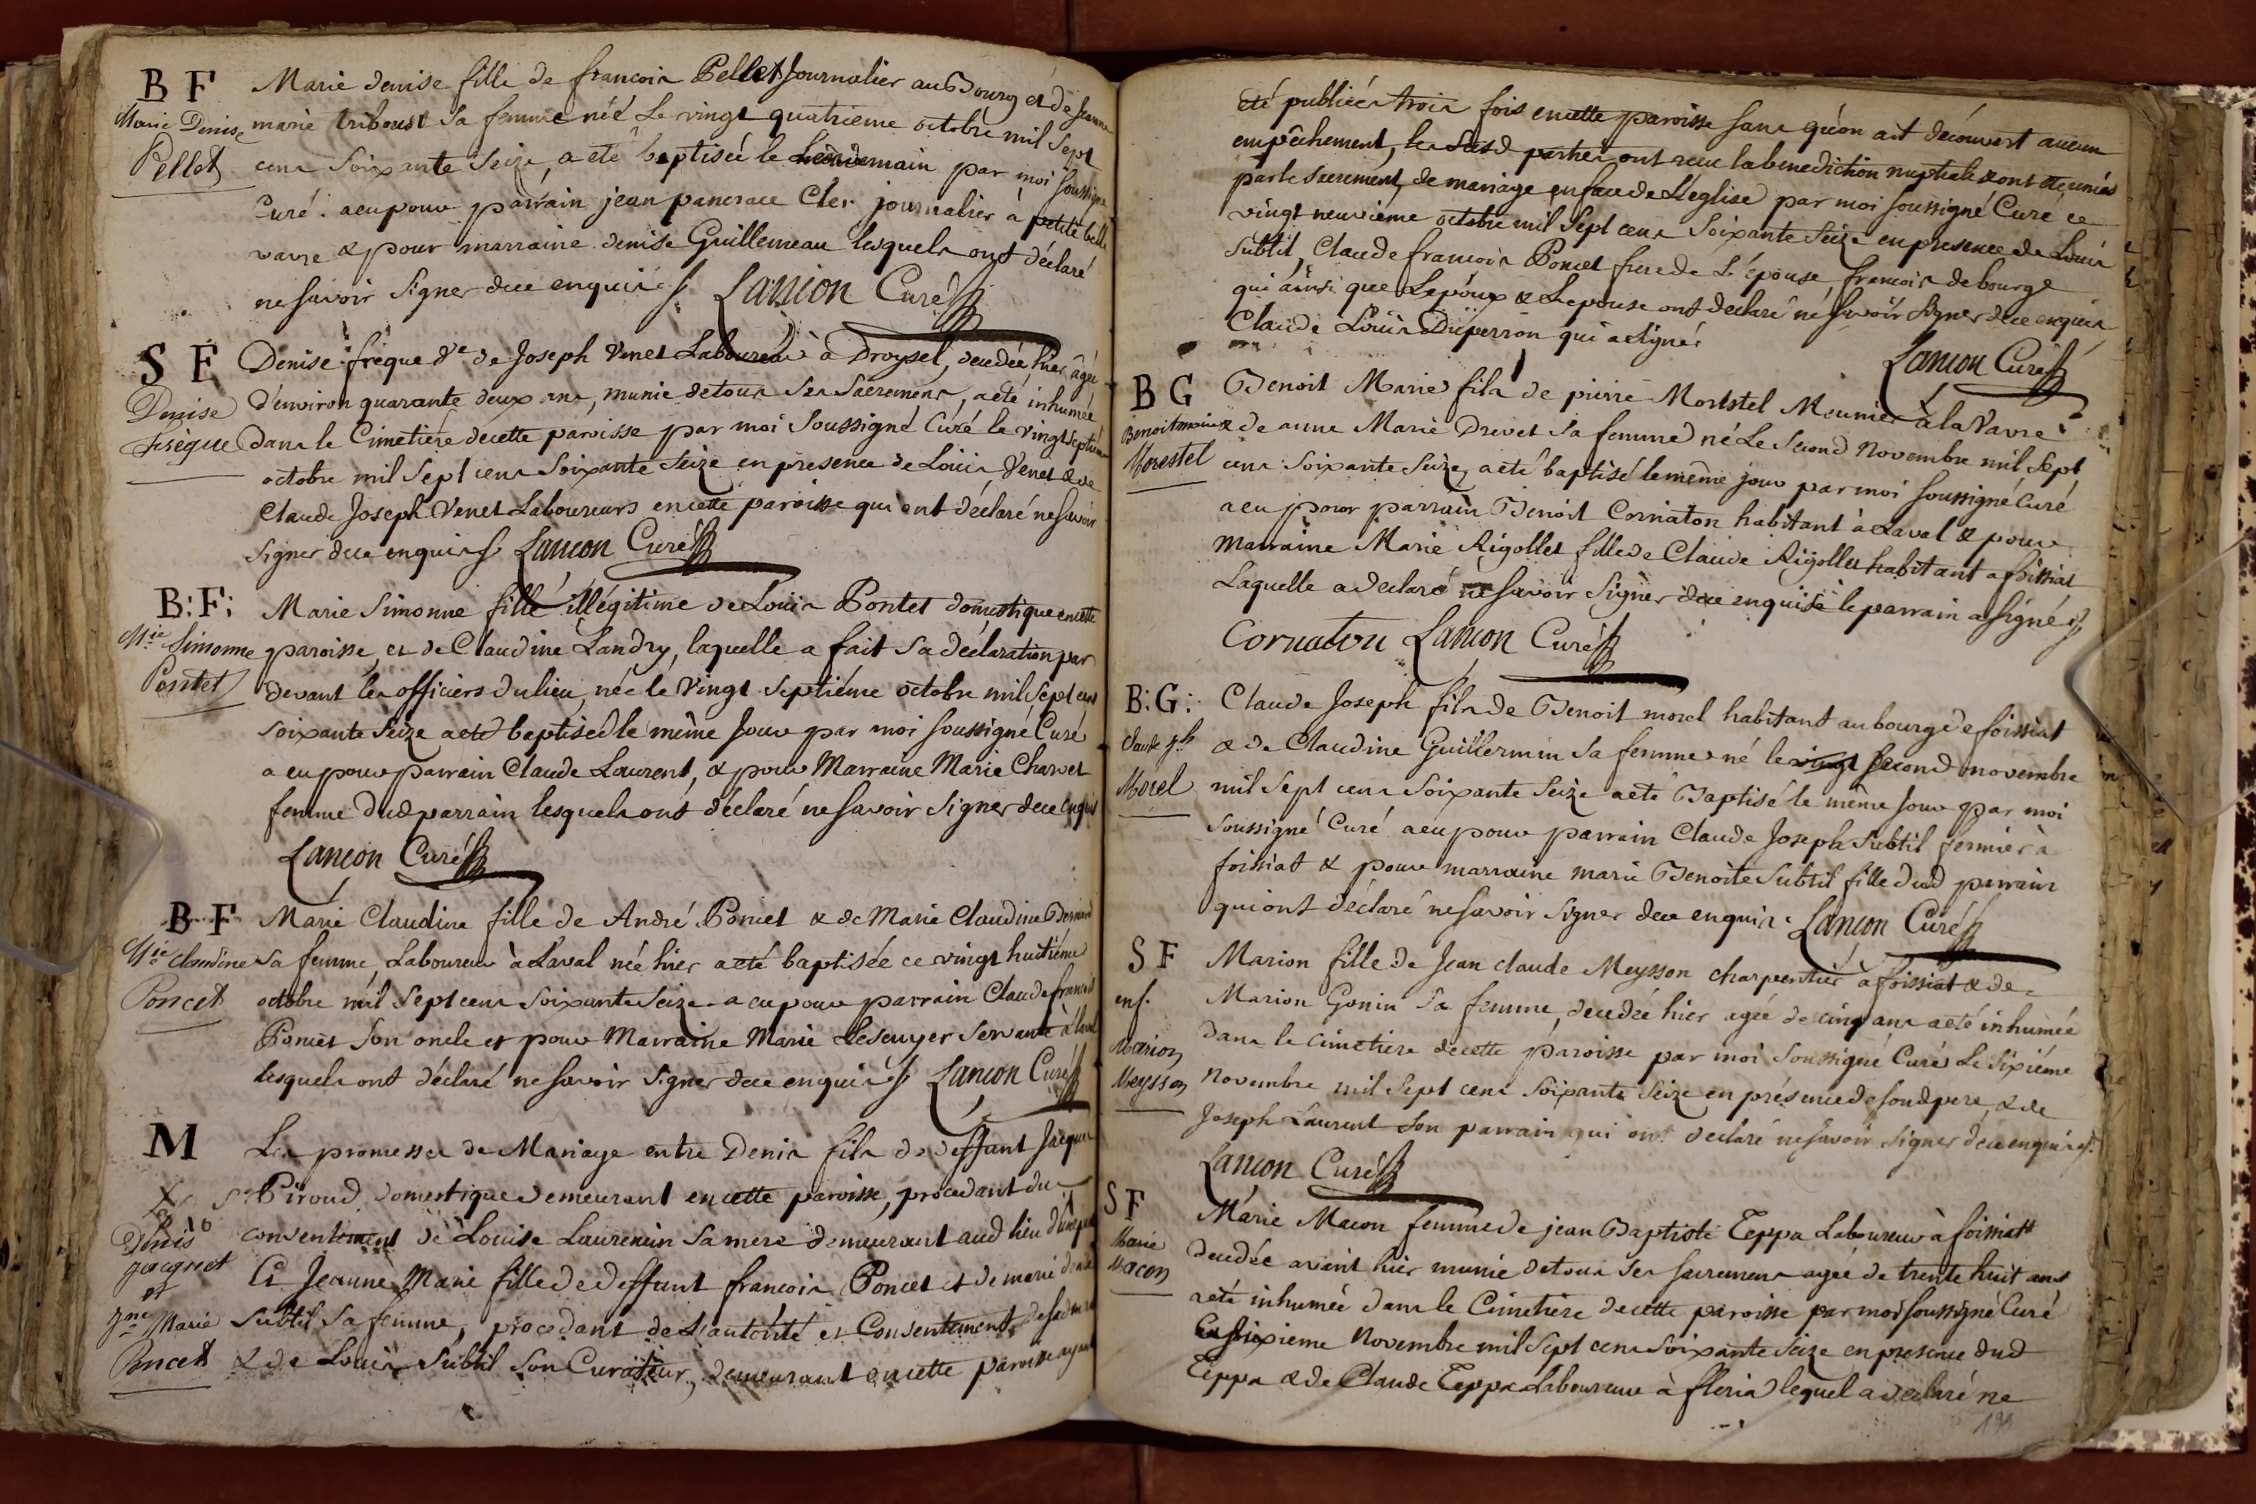 B F
Marie Denise
Pellet
Marie denise fille de francois Pellet Journalier au Bourg et de Jeanne
marie triboust sa femme née Le vingt quatrieme octobre mil sept
cens soixante seize, a eté baptisée le lendemain par moi soussigné
Curé. a eu pour parrain jean pancrace Cler journalier à petite belle
vavre & pour marraine denise Guillemeau lesquels ont déclaré
ne savoir signer de ce enquis
Lancon Curé
S F
Denise
freque
Denise freque Ve de Joseph Venet Laboureur à Droysel, decedée hier, agée
d'environ quarante deux ans, munie de tous ses Sacremens, a eté inhumée
dans le Cimetiére de cette paroisse par moi Soussigné Curé le vingt septieme
octobre mil sept cens soixante seize en presence de Loüis Venet & de
Claude Joseph Venet Laboureurs en cette paroisse qui ont déclaré ne savoir
signer de ce enquis
Lancon Curé
B:F:
Mie Simonne
Pontet
Marie Simonne fille illégitime de Loüis Pontet domestique en cette
paroisse, et de Claudine Landry, laquelle a fait sa déclaration par
devant les officiers du lieu, née le vingt septiéme octobre mil sept cens
soixante seize a eté baptisée le même jour par moi soussigné Curé
a eu pour parrain Claude Laurent, & pour Marraine Marie Charvet
femme dud parrain lesquels ont déclaré ne savoir signer de ce enquis
Lancon Curé
B F
Mie claudine
Poncet
Marie Claudine fille de André Poncet & de Marie Claudine Bernard
sa femme, Laboureur à Laval née hier a eté baptisée ce vingt huitiéme
octobre mil sept cens soixante seize. a eu pour parrain Claude francois
Poncet son oncle et pour Marraine Marie Lescuyer servante à laval
lesquels ont déclaré ne savoir signer de ce enquis
Lancon Curé
M
Denis
jacquet
et
jne Marie
Poncet
Les promesses de Mariage entre Denis fils de deffunt Jacques
Piroud, domestique demeurant en cette paroisse, procedant du
consentement de Louise Laurencin sa mere demeurant aud lieu d'une part
Et Jeanne Marie fille de deffunt francois Poncet et de marie denise
Subtil sa femme, procedant de L'autorité et Consentement de sa mere
& de Loüis Subtil son Curateur, demeurant en cette paroisse ayant
eté publiées trois fois en cette paroisse sans qu'on ait découvert aucun
empêchement, les susd parties ont recu la benediction nuptiale & ont eté unies
par le sacrement de mariage en face de L'eglise par moi soussigné Curé ce
vingt neuviéme octobre mil sept cens soixante seize en presence de Louis
Subtil, Claude francois Poncet frere de L'épouse, francois debourg
qui ainsi que L'epoux & L'epouse ont declaré ne savoir signer de ce enquis
Claude Loüis Duperron qui a signé
Lancon Curé
B G
Benoit marie
Morestel
Benoit Marie fils de pierre Morestel Meunier à la Vavre
& de anne Marie Drevet sa femme né Le second Novembre mil sept
cens soixante seize, a eté baptisé le même jour par moi soussigné Curé
a eu pour parrain Benoit Cornaton habitant à Laval & pour
Marraine Marie Rigollet fille de Claude Rigollet habitant a foissiat
Laquelle a déclaré ne savoir signer de ce enquise le parrain a signé
Cornaton Lancon Curé
B:G:
Claude jph
Morel
Claude Joseph fils de Benoit morel habitant au bourg de foissiat
& de Claudine Guillermin sa femme né le vingt second novembre
mil sept cens soixante seize a eté Baptisé le même jour par moi
soussigné Curé a eu pour parrain Claude Joseph Subtil fermier à
foissiat & pour marraine marie Benoite Subtil fille dud parrain
qui ont déclaré ne savoir signer de ce enquis
Lancon Curé
S F
enf.
Marion
Meysson
Marion fille de Jean claude Meysson charpentier à foissiat & de
Marion Gonin sa femme, decedée hier agée de cinq ans a eté inhumée
dans le cimetiere de cette paroisse par moi soussigné Curé Le sixiéme
Novembre mil sept cens soixante seize en présence de sond pere, & de
Joseph Laurent son parrain qui ont declaré ne savoir signer de ce enquis
Lancon Curé
S F
Marie
Macon
Marie Macon femme de jean Baptiste Teppa Laboureur à foissiat
decedée avant hier munie de tous ses sacremens agée de trente huit ans
a eté inhumée dans le Cimetiere de cette paroisse par moi soussigné Curé
Le sixieme Novembre mil sept cens soixante seize en presence dud
Teppa & de Claude Teppa Laboureur à fleria lequel a declaré ne